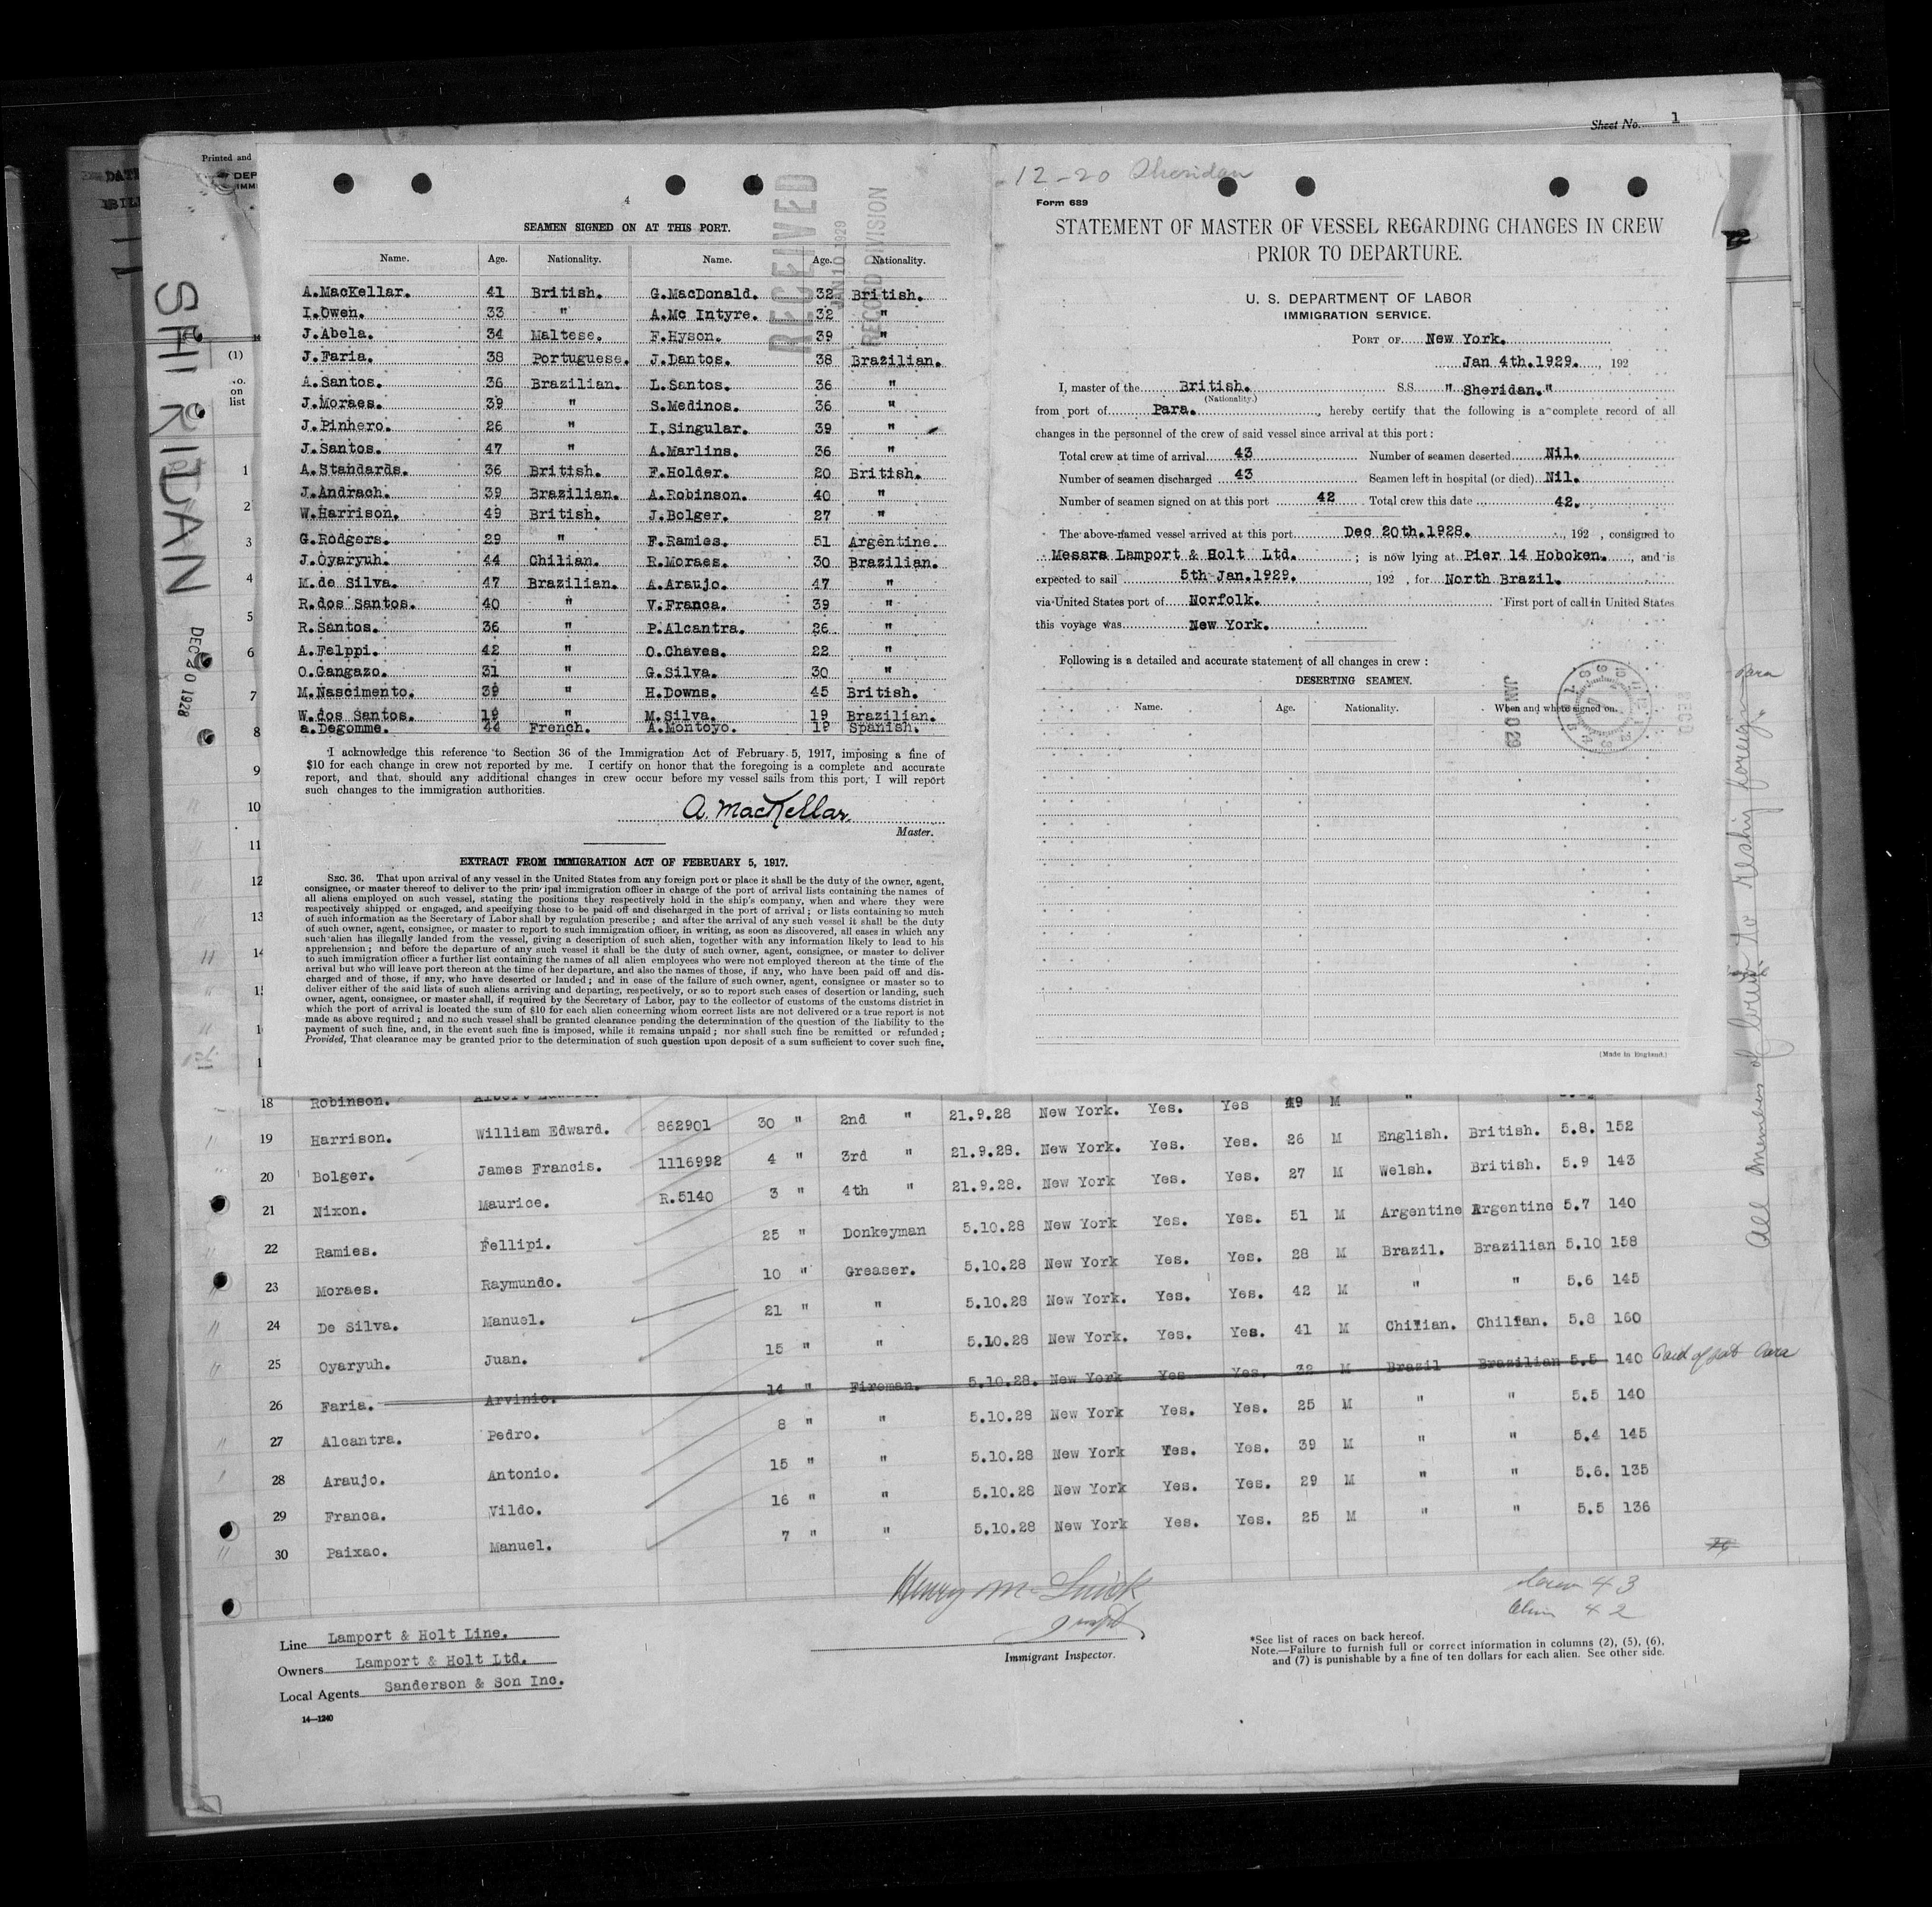 Sheet No. 1
Printed and
DEP
IMMI
DATE
SHIRIDAN
DEC 20 1928
(1)
No.
on
list
4
SEAMEN SIGNED ON AT THIS PORT.
RECEIVED
JAN 10 1929
RECORD DIVISION
Name. Age. Nationality. Name. Age. Nationality.
A.MacKellar. 41 British. G.MacDonald. 32 British.
I.Owen. 33 " A.Mc Intyre. 32 "
J.Abela. 34 Maltese. F.Hyson. 39 "
J.Faria. 38 Portuguese. J.Dantos. 38 Brazilian.
A.Santos. 36 Brazilian. L.Santos. 36 "
J.Moraes. 39 " S.Medinos. 36 "
J.Pinhero. 26 " I.Singular. 39 "
J.Santos. 47 " A.Marlins. 36 "
A.Standards. 36 British. F.Holder. 20 British.
J.Andrach. 39 Brazilian. A.Robinson. 40 "
W.Harrison. 49 British. J.Bolger. 27 "
G.Rodgers. 29 " F.Ramies. 51 Argentine.
J.Oyaryuh. 44 Chilian. R.Moraes. 30 Brazilian.
M.de Silva. 47 Brazilian. A.Araujo. 47 "
R.dos Santos. 40 " V.Franca. 39 "
R.Santos. 36 " P.Alcantra. 26 "
A.Felppi. 42 " O.Chaves. 22 "
O.Gangazo. 31 " G.Silva. 30 "
M.Nascimento. 39 " H.Downs. 45 British.
W.dos Santos. 19 " M.Silva. 19 Brazilian.
a.Degomme. 44 French. A.Montoyo. 19 Spanish.
I acknowledge this reference to Section 36 of the Immigration Act of February 5, 1917, imposing a fine of
$10 for each change in crew not reported by me. I certify on honor that the foregoing is a complete and accurate
report, and that, should any additional changes in crew occur before my vessel sails from this port, I will report
such changes to the immigration authorities.
A. MacKellar.
Master.
EXTRACT FROM IMMIGRATION ACT OF FEBRUARY 5, 1917.
SEC. 36. That upon arrival of any vessel in the United States from any foreign port or place it shall be the duty of the owner, agent,
consignee, or master thereof to deliver to the principal immigration officer in charge of the port of arrival lists containing the names of
all aliens employed on such vessel, stating the positions they respectively hold in the ship's company, when and where they were
respectively shipped or engaged, and specifying those to be paid off and discharged in the port of arrival; or lists containing so much
of such information as the Secretary of Labor shall by regulation prescribe; and after the arrival of any such vessel it shall be the duty
of such owner, agent, consignee, or master to report to such immigration officer, in writing, as soon as discovered, all cases in which any
such alien has illegally landed from the vessel, giving a description of such alien, together with any information likely to lead to his
apprehension; and before the departure of any such vessel it shall be the duty of such owner, agent, consignee, or master to deliver
to such immigration officer a further list containing the names of all alien employees who were not employed thereon at the time of the
arrival but who will leave port thereon at the time of her departure, and also the names of those, if any, who have been paid off and dis-
charged and of those, if any, who have deserted or landed; and in case of the failure of such owner, agent, consignee or master so to
deliver either of the said lists of such aliens arriving and departing, respectively, or so to report such cases of desertion or landing, such
owner, agent, consignee, or master shall, if required by the Secretary of Labor, pay to the collector of customs of the customs district in
which the port of arrival is located the sum of $10 for each alien concerning whom correct lists are not delivered or a true report is not
made as above required; and no such vessel shall be granted clearance pending the determination of the question of the liability to the
payment of such fine, and, in the event such fine is imposed, while it remains unpaid; nor shall such fine be remitted or refunded;
Provided, That clearance may be granted prior to the determination of such question upon deposit of a sum sufficient to cover such fine,
12-20 Sheridan
Form 689
STATEMENT OF MASTER OF VESSEL REGARDING CHANGES IN CREW
PRIOR TO DEPARTURE.
U. S. DEPARTMENT OF LABOR
IMMIGRATION SERVICE.
PORT OF New York.
Jan 4th.1929. , 192
I, master of the British. S.S. " Sheridan."
(Nationality.)
from port of Para. , hereby certify that the following is a complete record of all
changes in the personnel of the crew of said vessel since arrival at this port:
Total crew at time of arrival 43 Number of seamen deserted Nil.
Number of seamen discharged 43 Seamen left in hospital (or died) Nil.
Number of seamen signed on at this port 42 Total crew this date 42.
The above-named vessel arrived at this port Dec 20th.1928. , 192 , consigned to
Messrs Lamport & Holt Ltd. ; is now lying at Pier 14 Hoboken. , and is
expected to sail 5th Jan.1929. , 192 , for North Brazil.
via United States port of Norfolk. First port of call in United States
this voyage was New York.
Following is a detailed and accurate statement of all changes in crew:
DESERTING SEAMEN.
Name. Age. Nationality. When and where signed on.
JAN 10 29
REC'D
(Made in England.)
All members of crew to reship foreign Para
1
2
3
4
5
6
7
8
9
10
11
12
13
14
18 Robinson. Albert Edward. 21.9.28 New York. Yes. Yes 49 M "
19 Harrison. William Edward. 862901 30 " 2nd " 21.9.28. New York. Yes. Yes. 26 M English. British. 5.8. 152
20 Bolger. James Francis. 1116992 4 " 3rd " 21.9.28. New York Yes. Yes. 27 M Welsh. British. 5.9 143
21 Nixon. Maurice. R.5140 3 " 4th " 5.10.28 New York Yes. Yes. 51 M Argentine Argentine 5.7 140
22 Ramies. Fellipi. 25 " Donkeyman 5.10.28 New York Yes. Yes. 28 M Brazil. Brazilian 5.10 158
23 Moraes. Raymundo. 10 " Greaser. 5.10.28 New York. Yes. Yes. 42 M " " 5.6 145
24 De Silva. Manuel. 21 " " 5.10.28 New York. Yes. Yes. 41 M Chilian. Chilian. 5.8 160
25 Oyaryuh. Juan. 15 " " 5.10.28. New York Yes Yes. 32 M Brazil Brazilian 5.5 140 Paid off at Para
26 Faria. Arvinio. 14 " Fireman. 5.10.28 New York Yes. Yes. 25 M " " 5.5 140
27 Alcantra. Pedro. 8 " " 5.10.28 New York Yes. Yes. 39 M " " 5.4 145
28 Araujo. Antonio. 15 " " 5.10.28 New York Yes. Yes. 29 M " " 5.6. 135
29 Franca. Vildo. 16 " " 5.10.28 New York Yes. Yes. 25 M " " 5.5 136
30 Paixao. Manuel. 7 " "
Crew 43
42
Line Lamport & Holt Line.
Owners Lamport & Holt Ltd.
Local Agents Sanderson & Son Inc.
14—1240
Immigrant Inspector.
*See list of races on back hereof.
Note.—Failure to furnish full or correct information in columns (2), (5), (6),
and (7) is punishable by a fine of ten dollars for each alien. See other side.